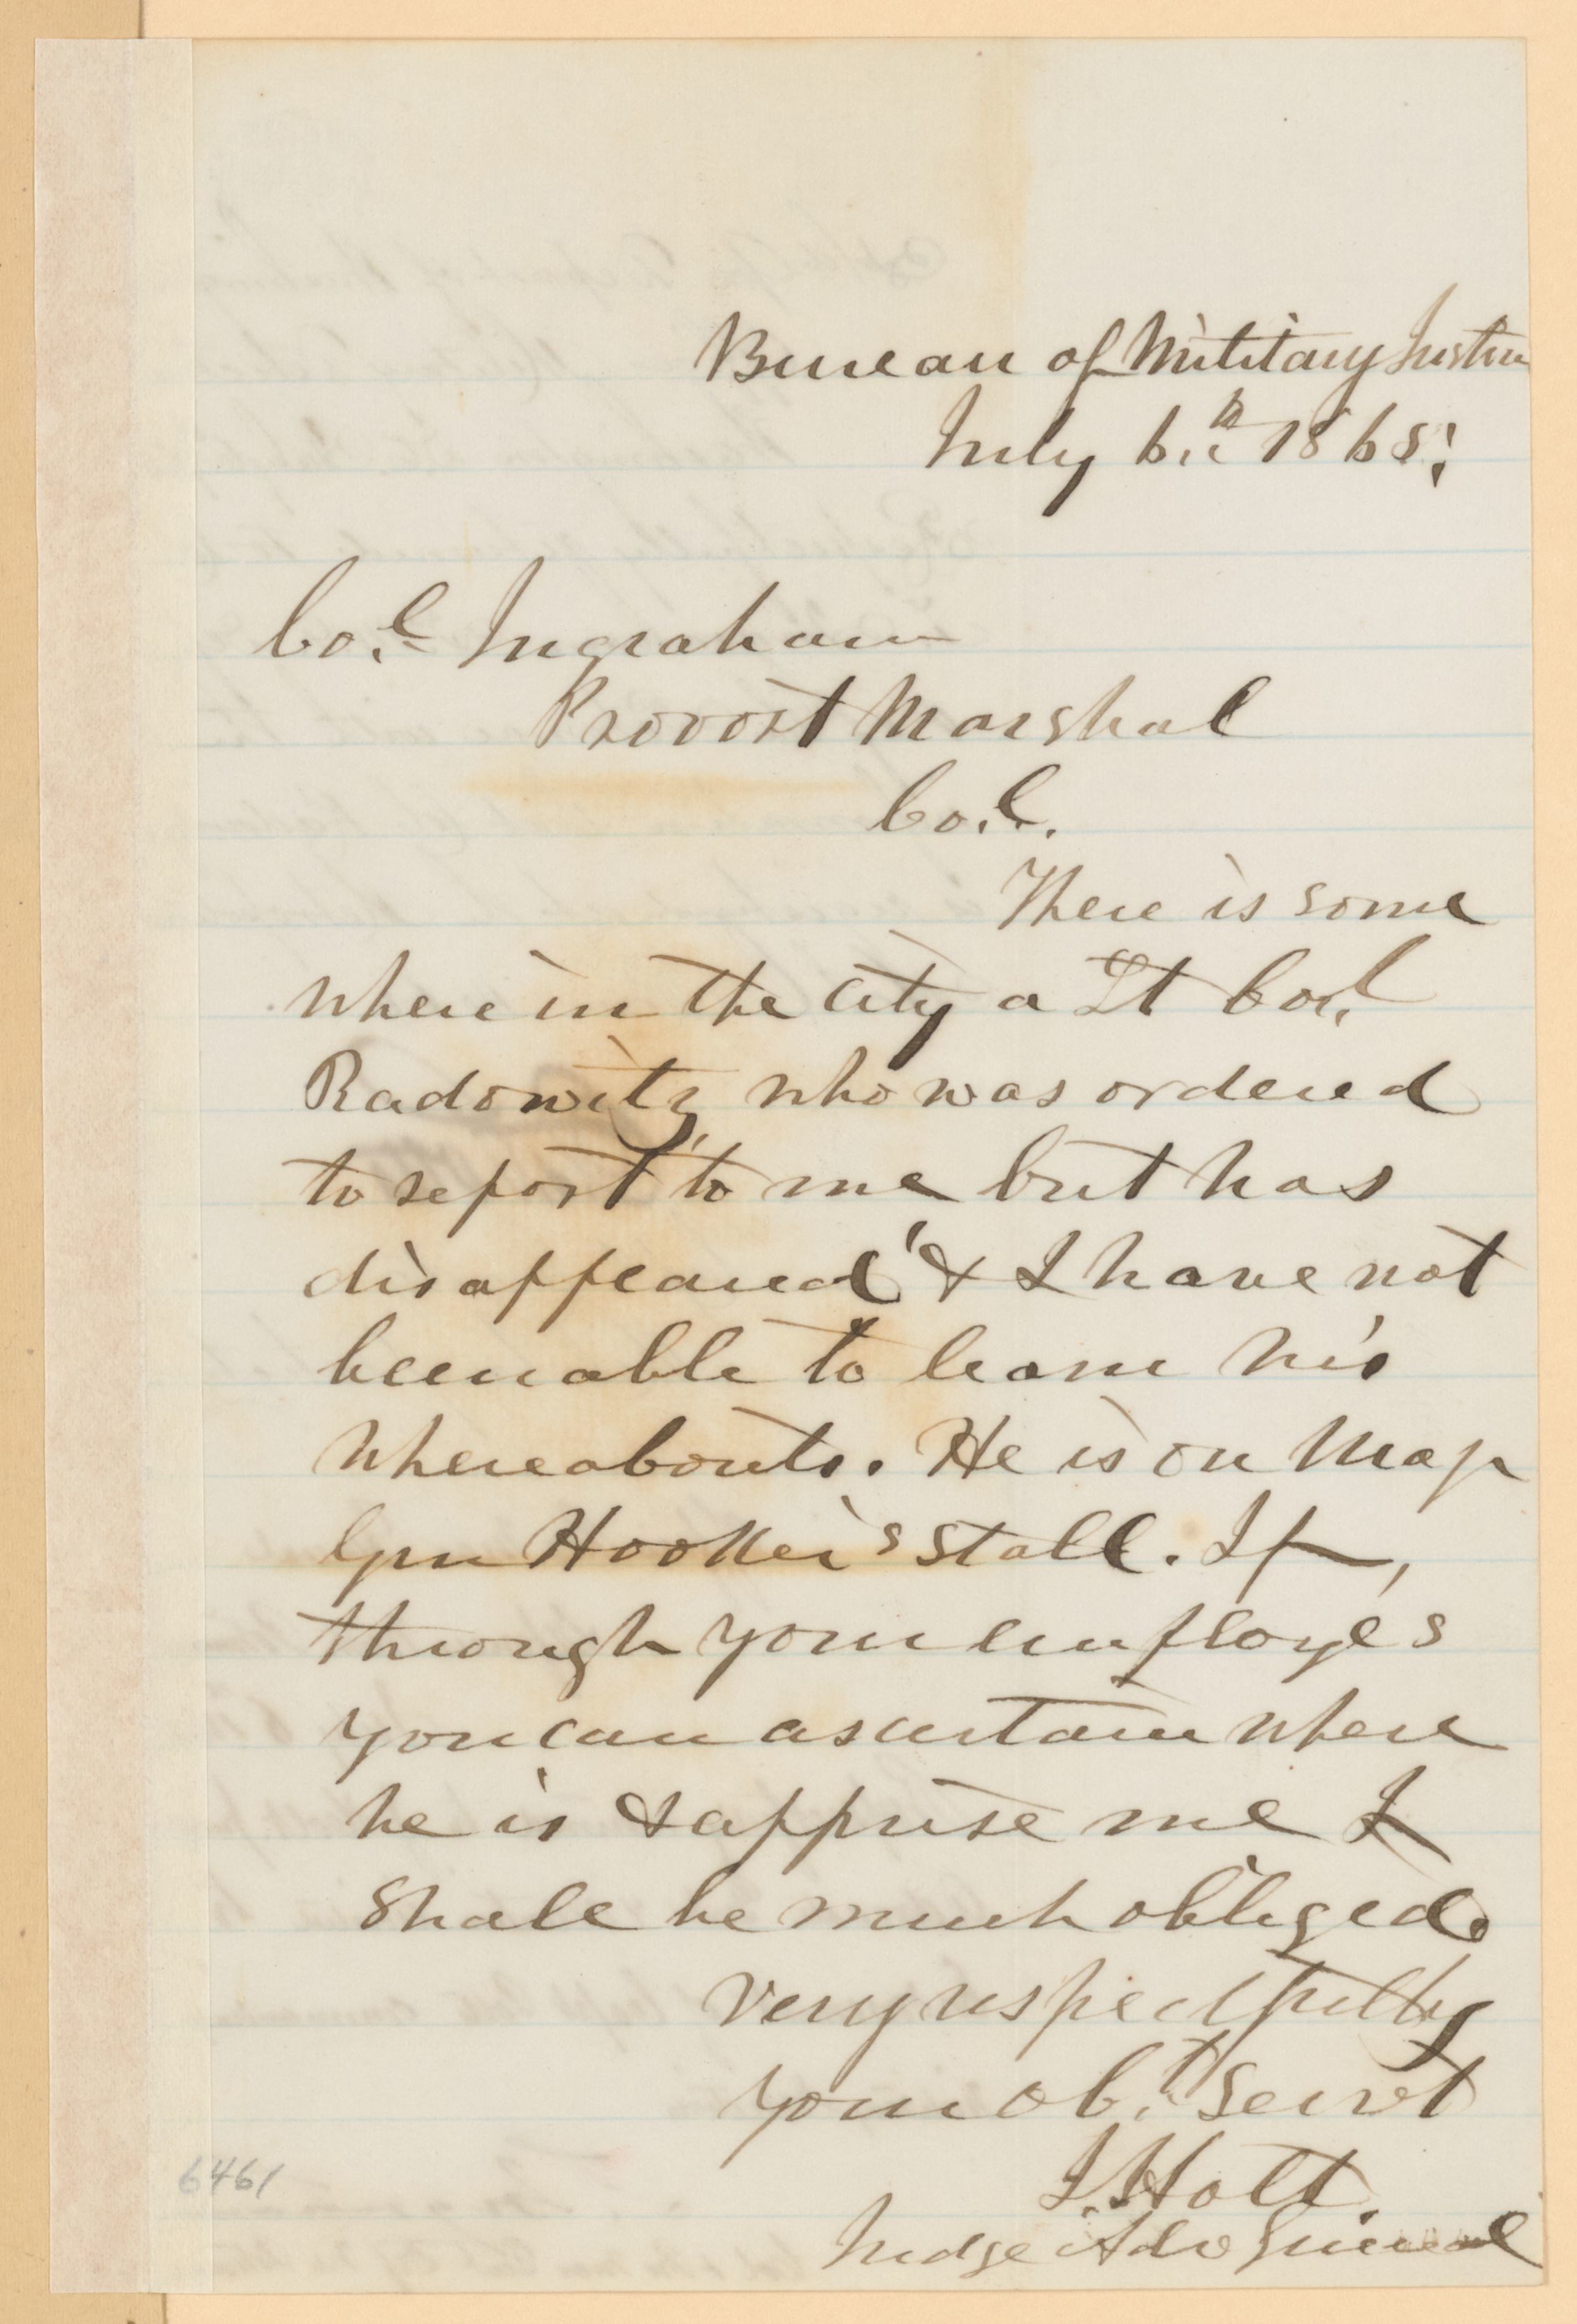 Bureau of Military Justice
July 6th 1865.
Col Ingraham
Provost Marshal
Col.
There is some
where in the city a Lt Col
Radowitz, who was ordered
to report to me but has
disappeared & I have not
been able to learn his
whereabouts. He is on Maj
Gen Hooker's staff. If,
through your employés
you can ascertain where
he is & apprise me I
shall be much obliged.
very respectfully
your obt servt
J. Holt
Judge Adv General
6461